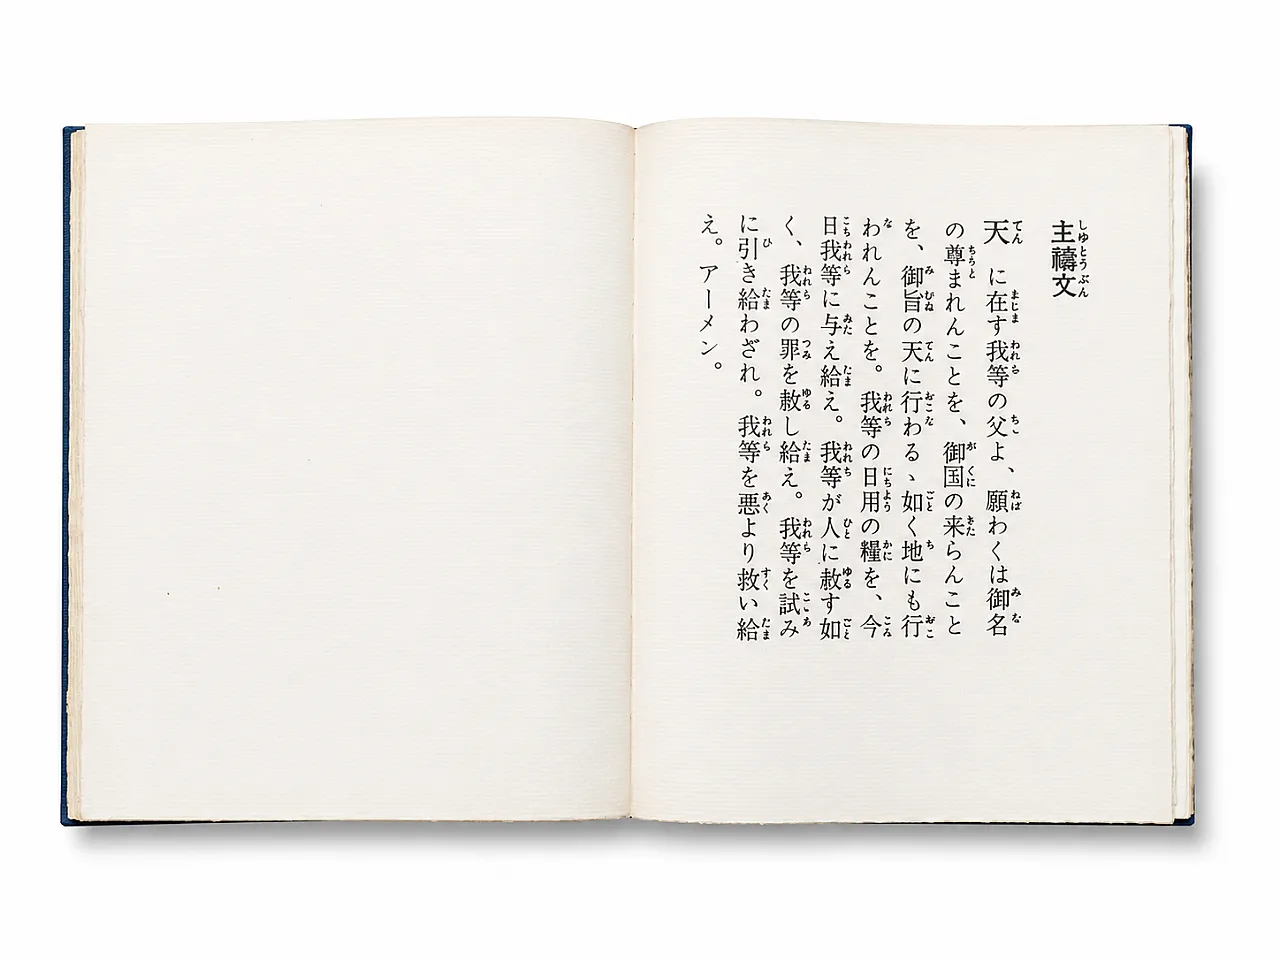 主禱文
天に在す我等の父よ、願わくは御名
の尊まれんことを、御国の来らんこと
を、御旨の天に行わるゝ如く地にも行
われんことを。我等の日用の糧を、今
日我等に与え給え。我等が人に赦す如
く、我等の罪を赦し給え。我等を試み
に引き給わざれ。我等を悪より救い給
え。アーメン。